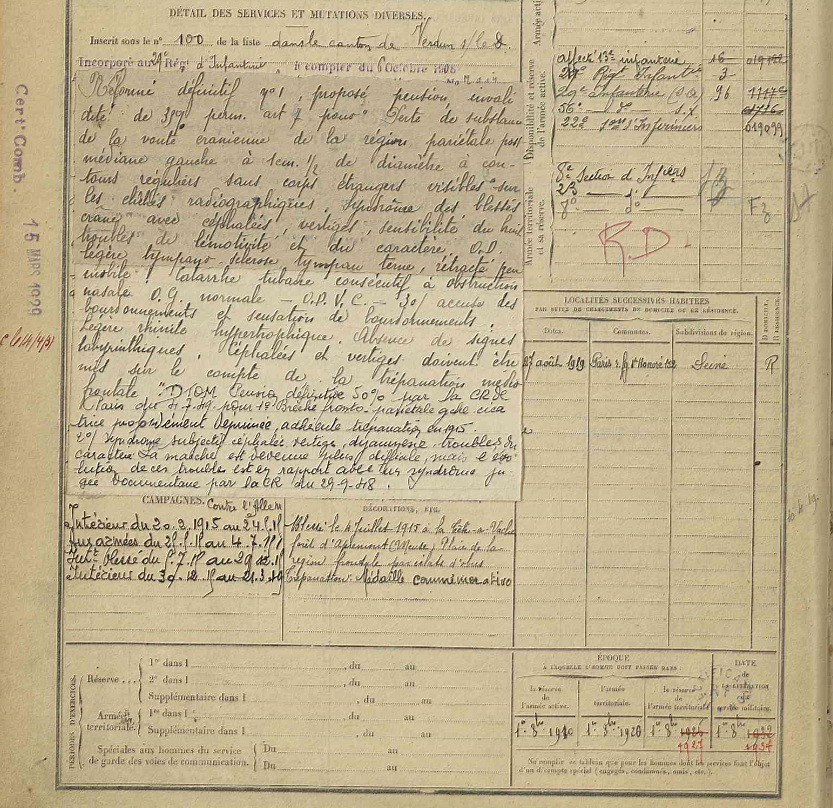 DÉTAIL DES SERVICES ET MUTATIONS DIVERSES.
Inscrit sous le n° 100 de la liste dans le canton de Verdun s/le D.
Incorporé au 29e Rég. d'Infanterie à compter du 6 Octobre 1908
Réformé définitif n°1, proposé pension invali
dité de 35% perm. art 7 pour "Perte de substance
de la voute cranienne de la région pariétale post
médiane gauche à 1cm. 1/2 de diamètre à con-
tours réguliers sans corps étrangers visibles sur
les clichés radiographiques. Syndrôme des blessés
crane avec céphalées, vertiges, sensibilité du bruit
troubles de l'émotivité et du caractère. O.D.
légère tympano-sclerose tympan terne, rétracté peu
mobile. Catarrhe tubaire consécutif à obstruction
nasale O.G. normale - O.D.V.C. - accuse des
bourdonnements et sensation de bourdonnements.
Légère rhinite hypertrophique. Absence de signes
labyrinthiques. Céphalées et vertiges doivent être
mis sur le compte de la trépanation médio
frontale". Pension définitive 50% par la CR de
Paris du pour 1° Brêche fronto-pariétale gche cica
trice profondément déprimée, adhérente trépanation en 1915.
2°/ Syndrome subjectif céphalée vertige, dysmnésie, troubles du
caractère La marche est devenue plus difficile, mais l'évo
lution de ces troubles est en rapport avec un syndrome ju
gée Documentaire par la CR du 29-9-48.
CAMPAGNES. Contre l'Allem
Intérieur du 20.2.1915 au
Aux armées du au 4.7.15
Int. blessé du 5.7.15 au
Intérieur du au
DÉCORATIONS, ETC.
Blessé le 4 Juillet 1915 à la Tête-à-Vache
forêt d'Apremont (Meuse). Plaie de la
région frontale par éclats d'obus
Trépanation. Médaille commémorative
Disponibilité et réserve de l'armée active.
Armée territoriale et sa réserve.
affecté 13e infanterie 16
29e Régt Infanterie 3
29e Infanterie 96
56e
22e Son d'Infirmiers 019099
8e Section d'Infiers
23
8e do
R.D.
LOCALITÉS SUCCESSIVES HABITÉES
PAR SUITE DE CHANGEMENTS DE DOMICILE OU DE RÉSIDENCE.
Dates.
Communes.
Subdivisions de région.
D DOMICILE, R RÉSIDENCE.
27 août 1919 Paris r. fg St Honoré Seine R
Certt Comb 15 MARS 1929
PÉRIODES D'EXERCICES.
Réserve ...
1re dans l , du au
2e dans l , du au
Supplémentaire dans l , du au
Armée territoriale.
1re dans l , du au
Supplémentaire dans l , du au
Spéciales aux hommes du service
de garde des voies de communication.
Du au
Du au
ÉPOQUE
À LAQUELLE L'HOMME DOIT PASSER DANS
la réserve de l'armée active.
l'armée territoriale.
la réserve de l'armée territoriale.
DATE de LA LIBÉRATION du service militaire.
1er 8bre 1910
1er 8bre 1920
1er 8bre 1926
1927
1er 8bre 1932
1934
Ne compter en tableau que pour les hommes dont les services font l'objet
d'un décompte spécial (engagés, condamnés, omis, etc.).